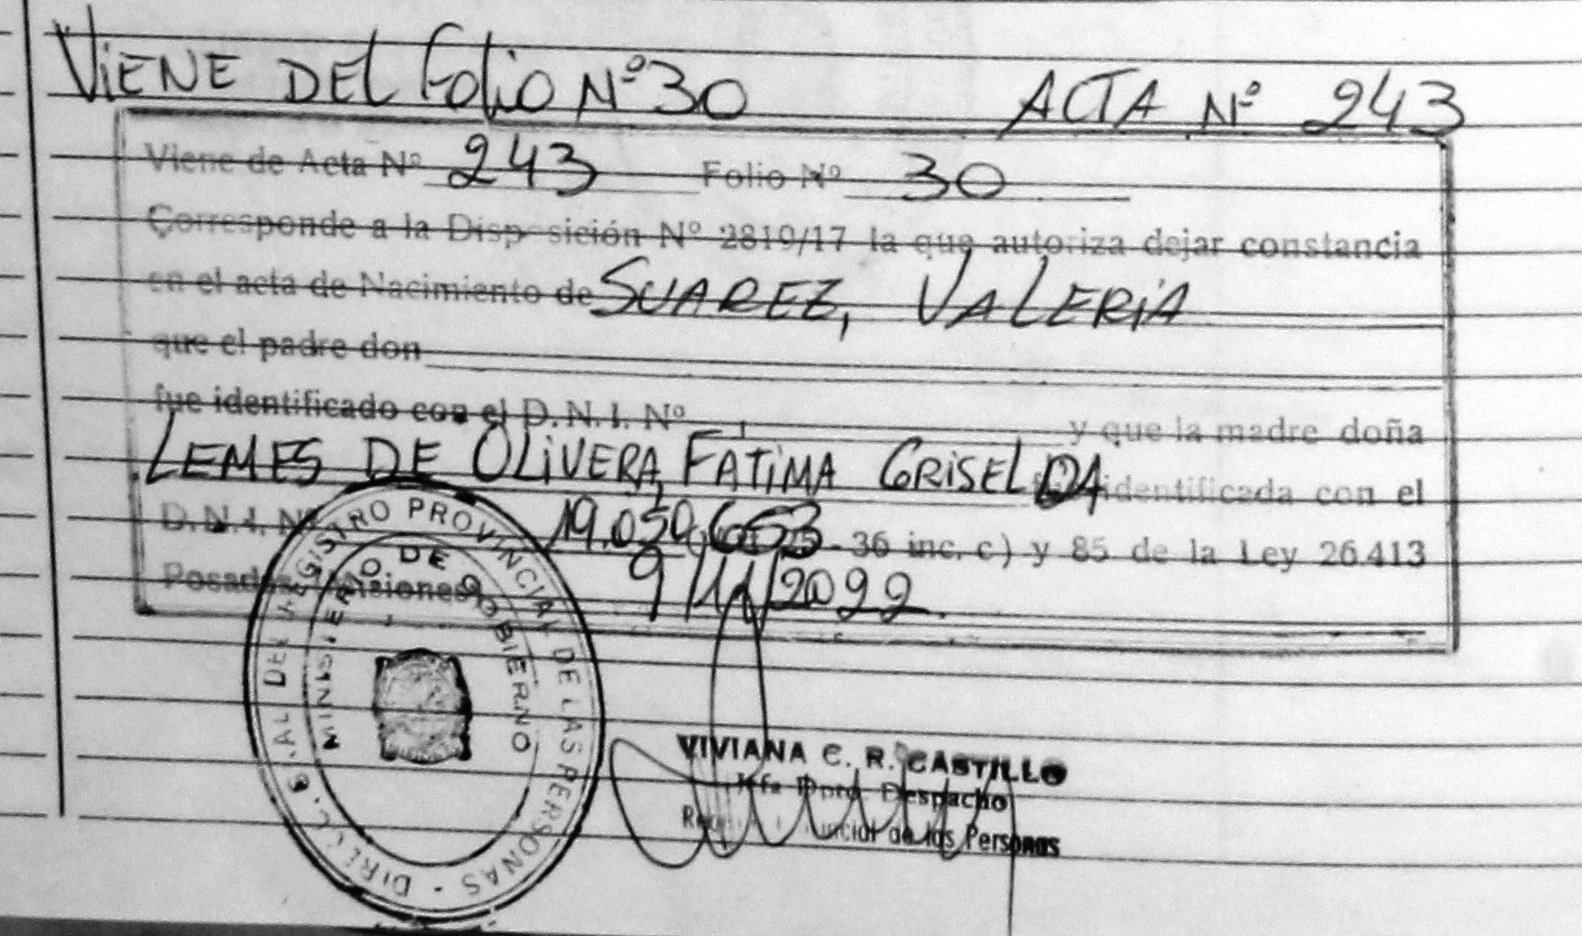 VIENE DEL Folio Nº 30 ACTA Nº 243
Viene de Acta Nº 243 Folio Nº 30
Corresponde a la Disposición Nº 2819/17 la que autoriza dejar constancia
en el acta de Nacimiento de SUAREZ, VALERIA
que el padre don
fue identificado con el D.N.I. Nº y que la madre doña
LEMES DE OLIVERA, FATIMA GRISELDA identificada con el
D.N.I. Nº 19.059.653 - 36 inc. c) y 85 de la Ley 26.413
Posadas, Misiones, 9/11/2022
DIRECC. GRAL DEL REGISTRO PROVINCIAL DE LAS PERSONAS
MINISTERIO DE GOBIERNO
VIVIANA C. R. CASTILLO
Jefa Dpto. Despacho
de las Personas